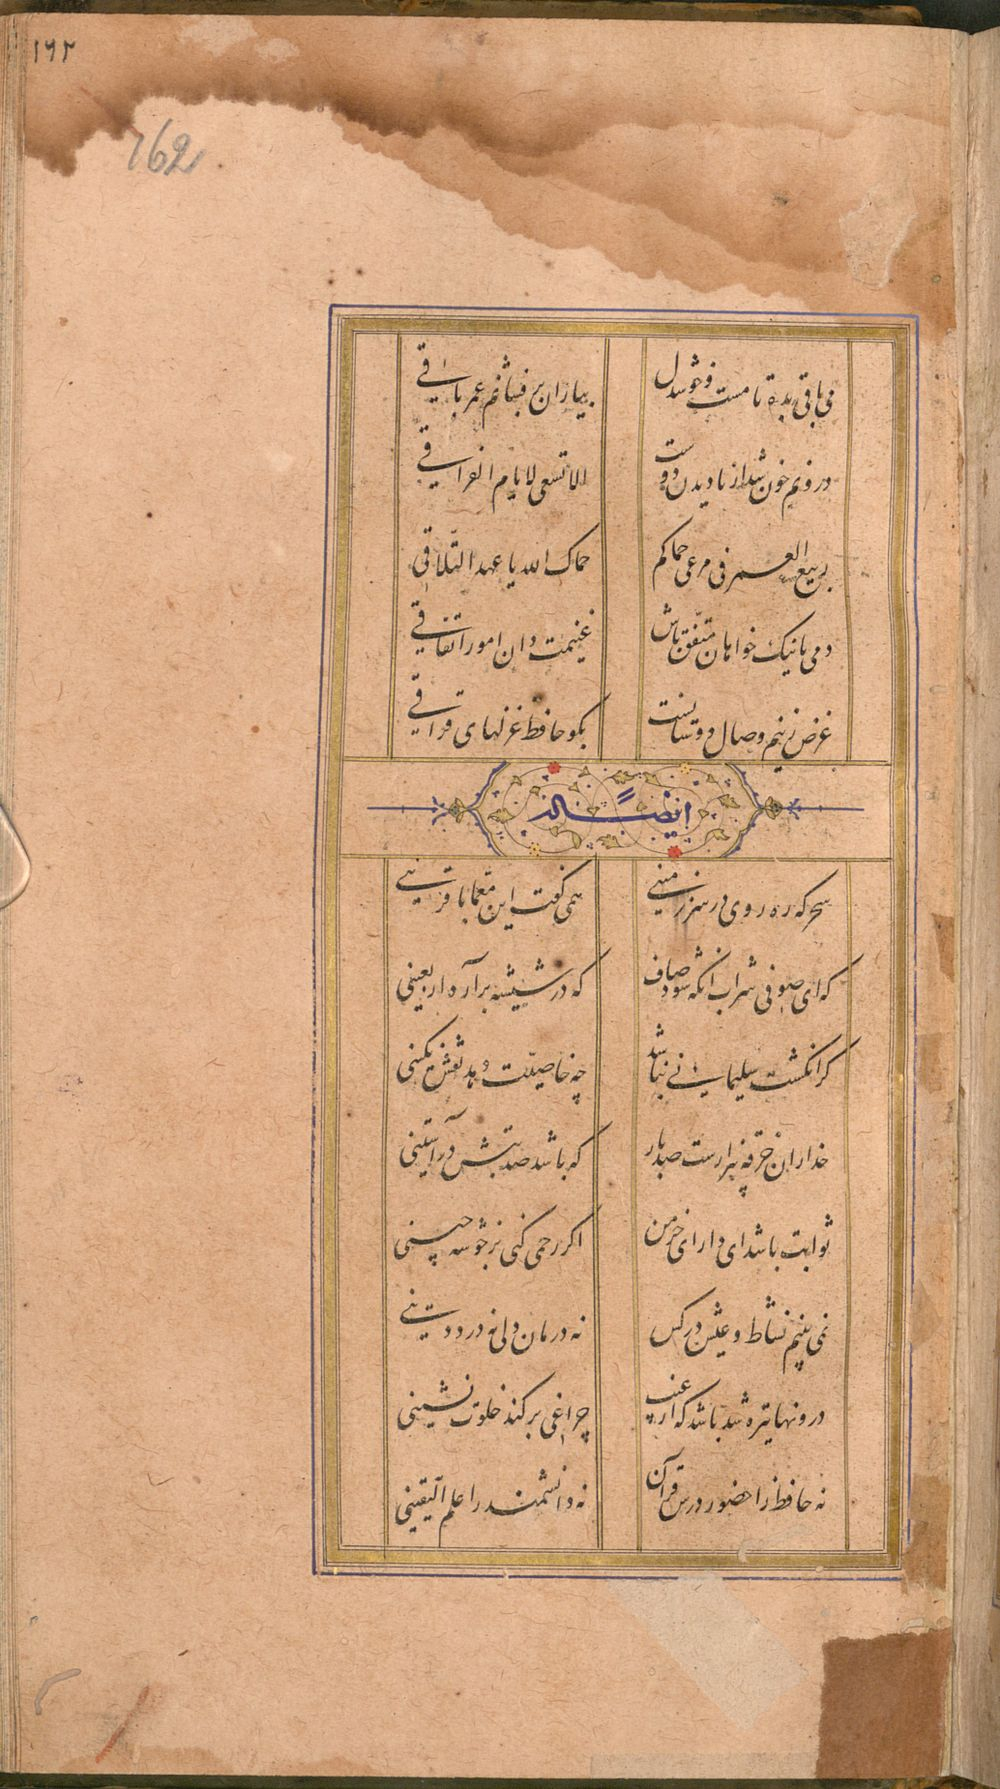 ١٦٢
162
می باقی بده تا مست و خوشدل
بیاران بر فشانم عمر باقی
درونم خون شد از نادیدن دوست
الا تسعی لایام الفراق
ربیع العمر فی مرعی حماکم
حماک الله یا عهد التلاقی
دمی با نیک خواهان متفق باش
غنیمت دان امور اتفاقی
غرض زینم وصال دوستانست
بکو حافظ غزلهای فراقی
ایضا له
سحرکه ره روی در سرزمینی
همی کفت این معما با قرینی
که ای صوفی شراب آنکه شود صاف
که در شیشه برآرد اربعینی
کر انکشت سلیمانی نباشد
چه خاصیت دهد نقش نکینی
خدا زان خرقه بیزارست صد بار
که باشد صد بتش در آستینی
ثوابت باشد ای دارای خرمن
اکر رحمی کنی بر خوشه چینی
نمی بینم نشاط و عیش در کس
نه درمان دلی نه درد دینی
درونها تیره شد باشد که از غیب
چراغی بر کند خلوت نشینی
نه حافظ را حضور درس قرآن
نه دانشمند را علم الیقینی